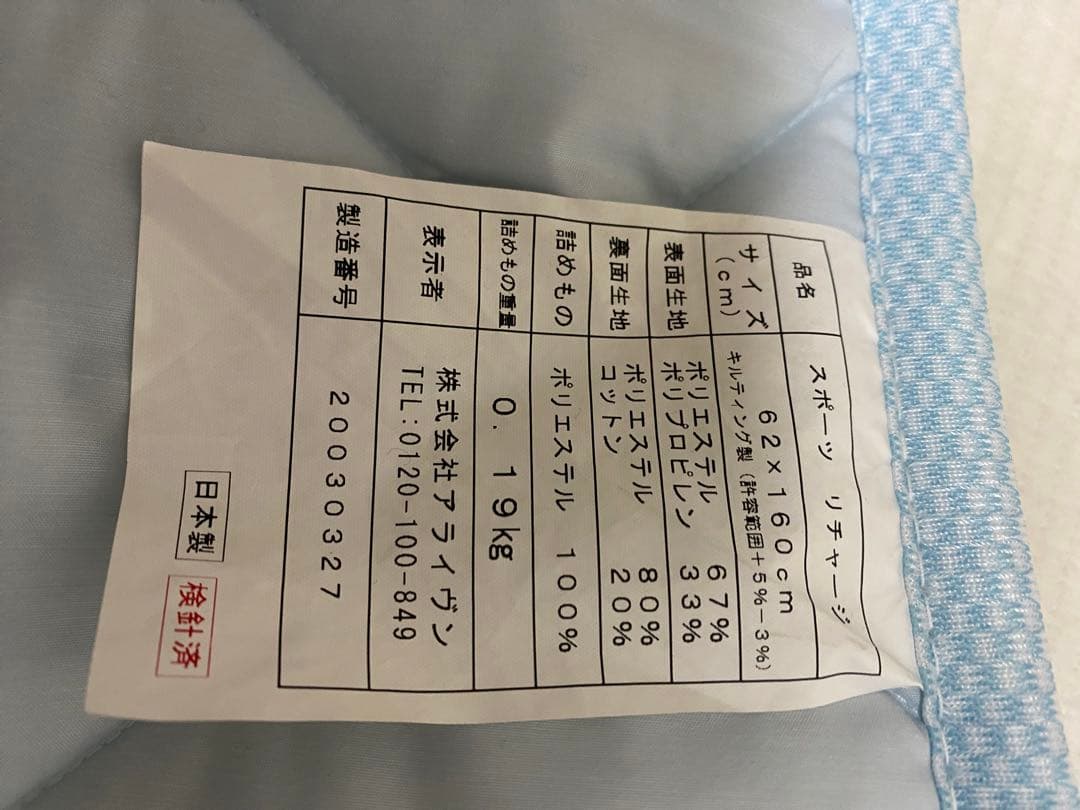 品名 スポーツ リチャージ
サイズ(cm) 62×160cm
キルティング製(許容範囲+5%-3%)
表面生地 ポリエステル 67%
ポリプロピレン 33%
裏面生地 ポリエステル 80%
コットン 20%
詰めもの ポリエステル 100%
詰めもの重量 0.19kg
表示者 株式会社アライヴン
TEL:0120-100-849
製造番号 20030327
日本製 検針済